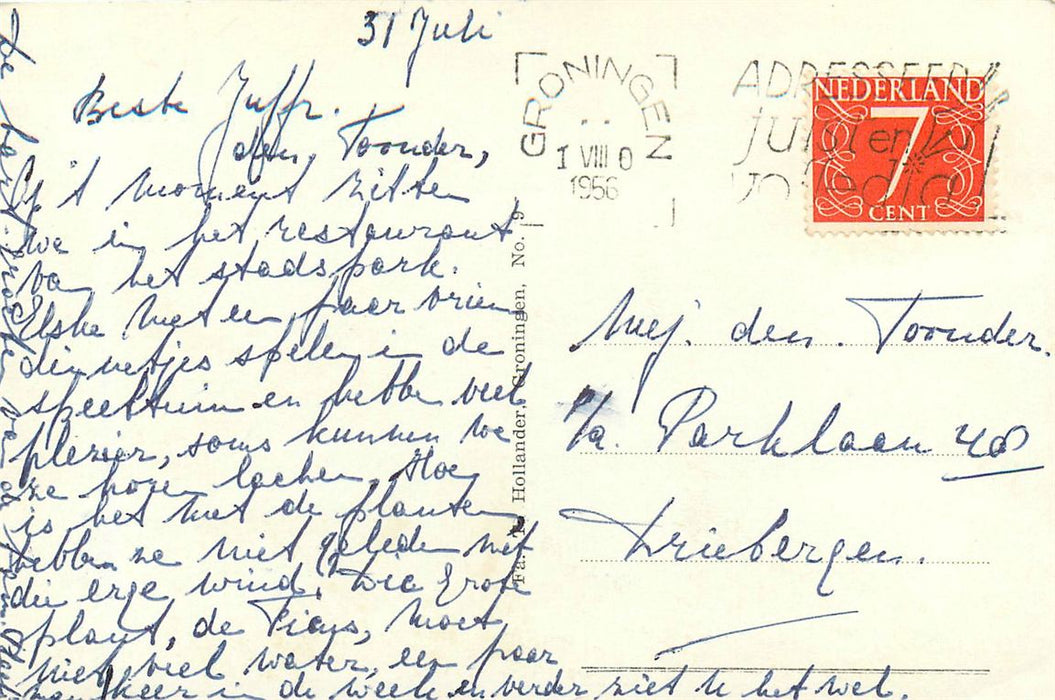 31 Juli
Beste Juffr.
den Toonder,
Op 't moment zitten
we in het restaurant
van het stadspark.
Elske met een paar vrien
dinnetjes spelen in de
speeltuin en hebben veel
plezier, soms kunnen we
ze horen lachen. Hoe
is het met de planten
hebben ze niet geleden met
die erge wind. Die grote
plant, de Ficus, moet
niet veel water, een paar
keer in de week en verder ziet u het wel.
GRONINGEN
1 VIII 0
1956
ADRESSEER
juist en
volledig
NEDERLAND
7
CENT
Fa. Hollander, Groningen, No. 9
Mej. den Toonder.
p/a. Parklaan 48
Driebergen.